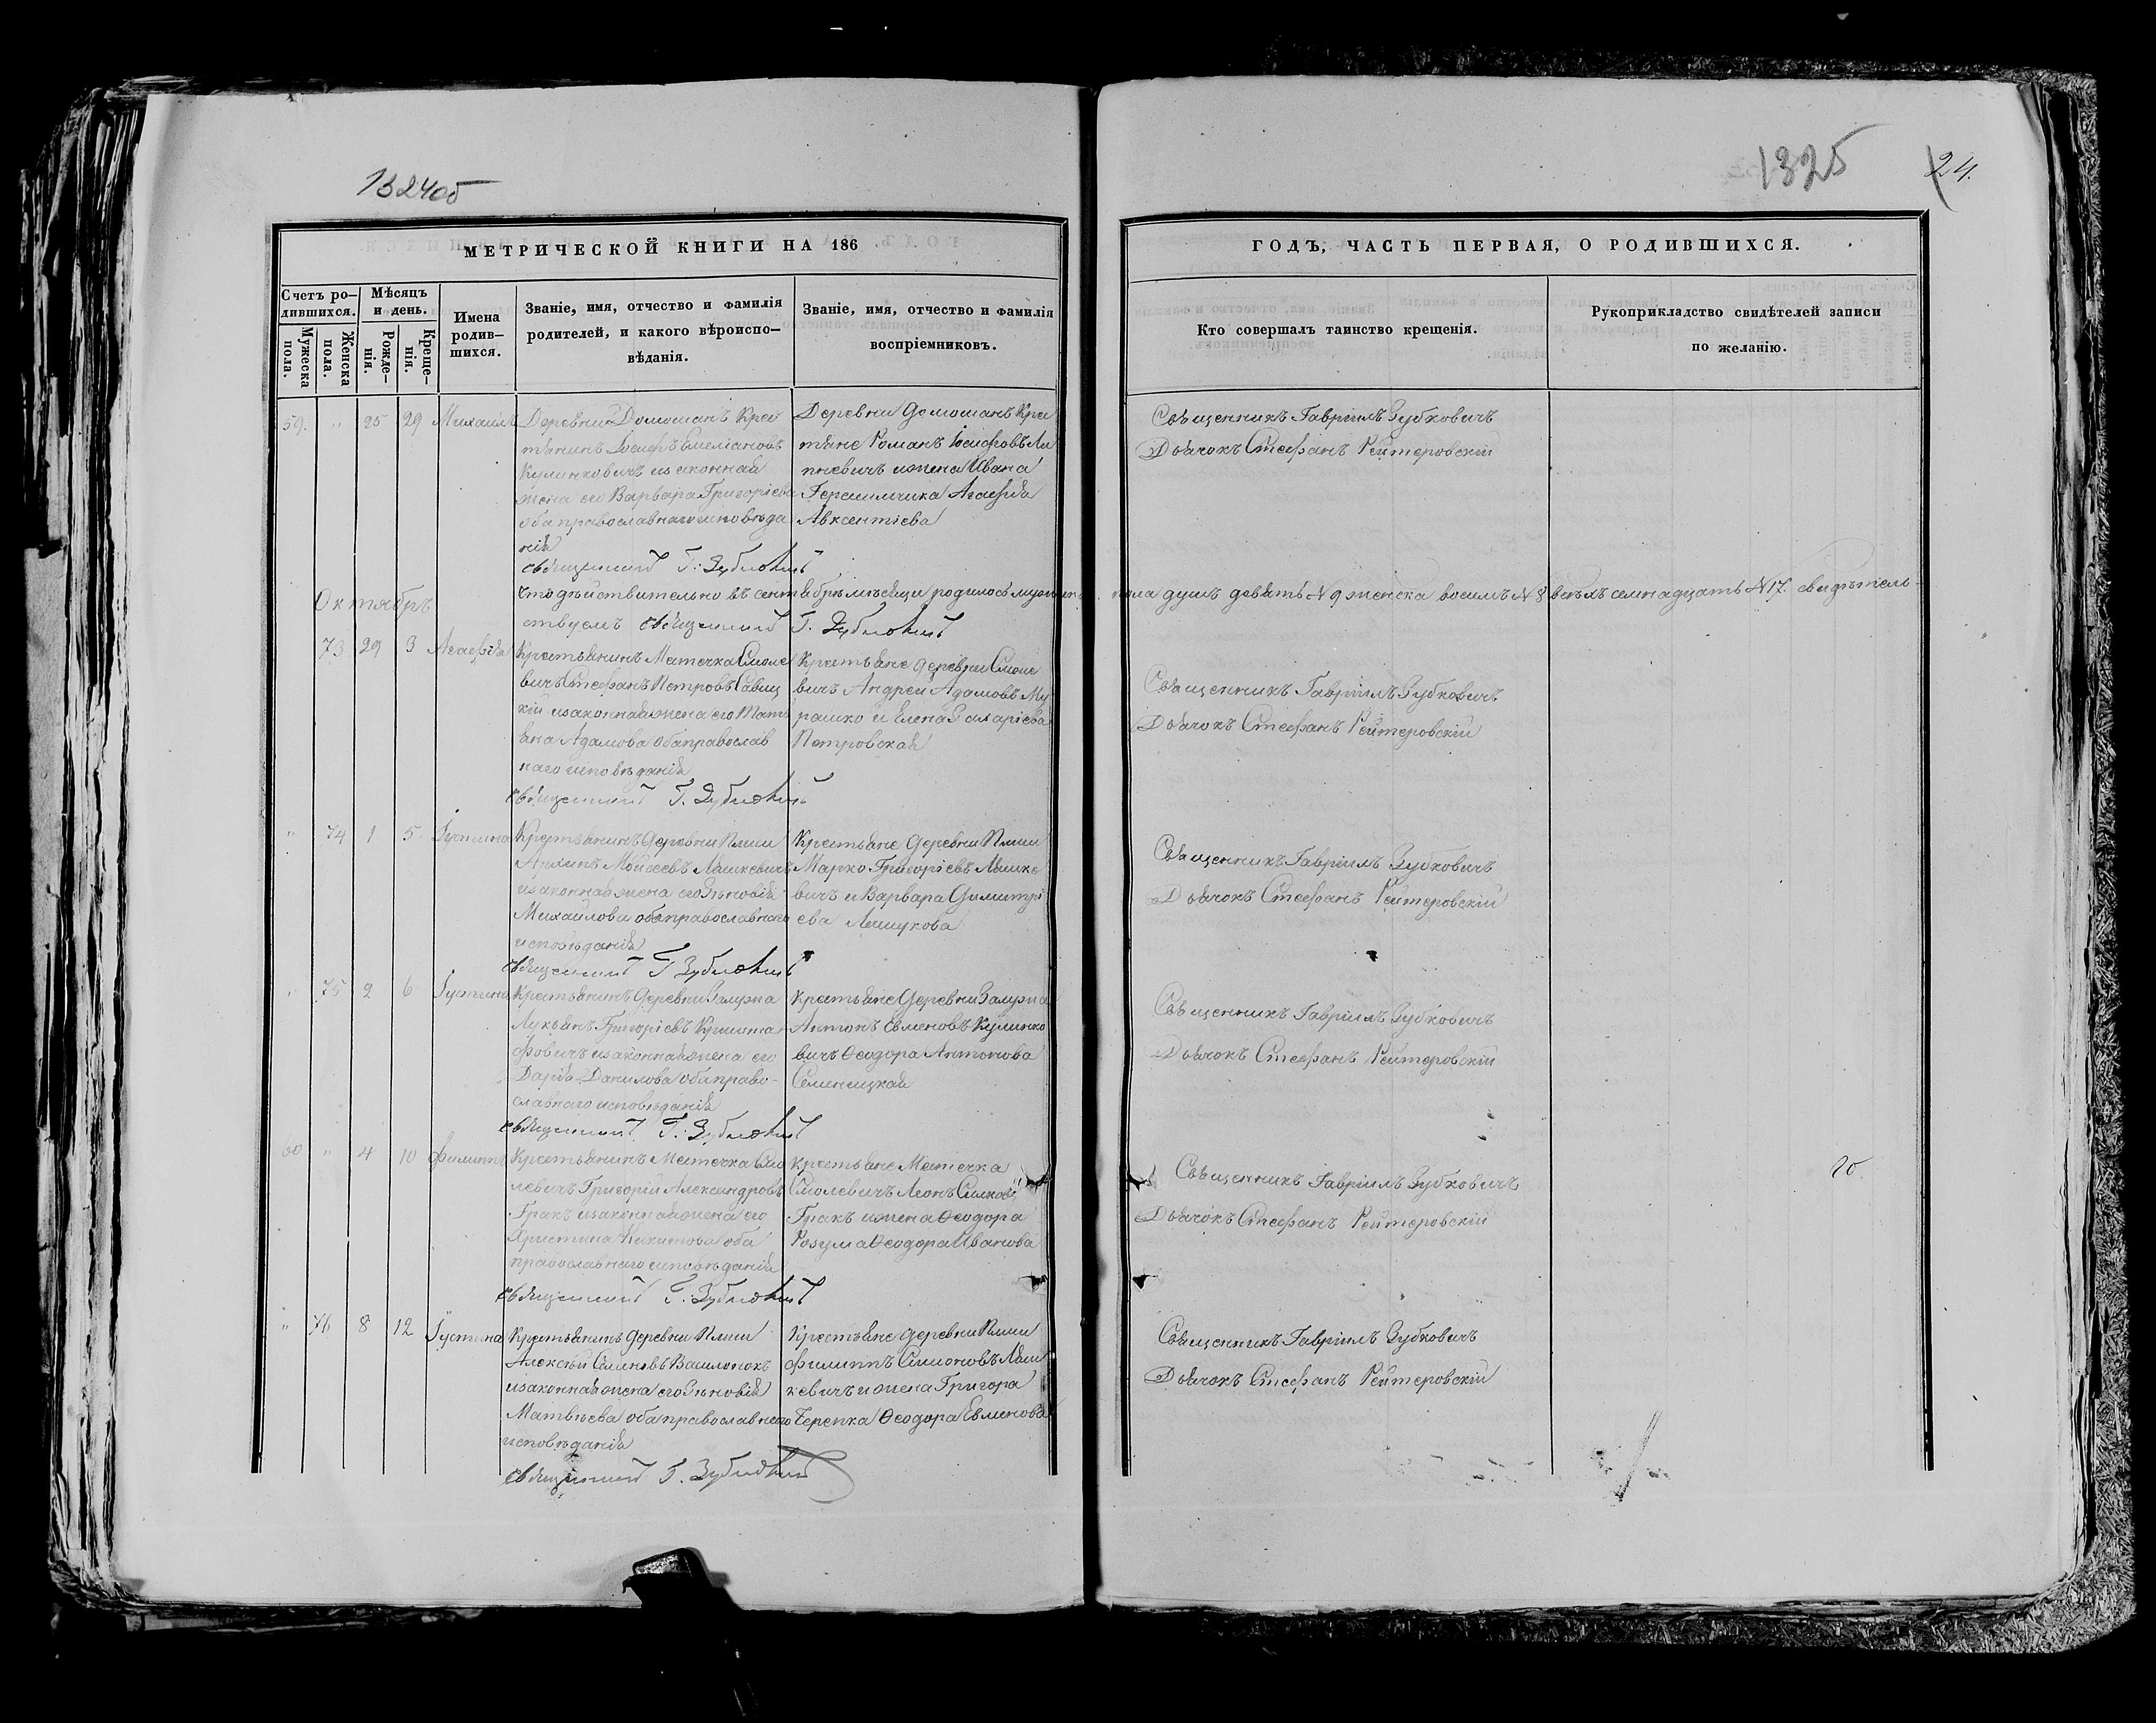 1324об
1325
24.
МЕТРИЧЕСКОЙ КНИГИ НА 186
ГОДЪ, ЧАСТЬ ПЕРВАЯ, О РОДИВШИХСЯ.
Счетъ ро-
дившихся.
Мужеска
пола.
Женска
пола.
Мѣсяцъ
и день.
Рожде-
нія.
Креще-
нія.
Имена
родив-
шихся.
Званіе, имя, отчество и фамилія
родителей, и какого вѣроиспо-
вѣданія.
Званіе, имя, отчество и фамилія
воспріемниковъ.
Кто совершалъ таинство крещенія.
Рукоприкладство свидѣтелей записи
по желанію.
59. " 25 29 Михаилъ
Деревни Домошанъ Крес
тянинъ Іосифъ Емеліановъ
Кулинковичъ изаконная
жена его Варвара Григоріева
оба православнаго исповѣда
нія
священникъ Г. Зубковичъ
Деревни Домошанъ Крес
тяне Романъ Іосифовъ Ли
пневичъ ижена Ивана
Герасимчика Агафія
Авксентіева
Священникъ Гавріилъ Зубковичъ
Дьячокъ Стефанъ Рейтеровскій
что дѣйствительно въ сентябрѣ мѣсяцѣ родилось мужеска пола душъ девять N 9 женска восемь N 8 всѣхъ семнадцать N 17. свидѣтель-
ствуемъ священникъ Г. Зубковичъ
Октябрь
73 29 3 Агафія
Крестьянинъ Местечка Смоле
вичъ Стефанъ Петровъ Савиц
кій изаконная жена его Тать
яна Адамова оба православ
наго исповѣданія
священникъ Г. Зубковичъ
Крестьяне деревни Смоле
вичъ Андрей Адамовъ Му
рашко и Елена Захаріева
Петровская
Священникъ Гавріилъ Зубковичъ
Дьячокъ Стефанъ Рейтеровскій
" 74 1 5 Іустина
Крестьянинъ деревни Плиси
Архипъ Мойсеевъ Ляшкевичъ
изаконная жена его Зѣновія
Михайлова оба православнаго
исповѣданія
священникъ Г Зубковичъ
Крестьяне деревни Плиси
Марко Григоріевъ Ляшке
вичъ и Варвара Димитрі
ева
Священникъ Гавріилъ Зубковичъ
Дьячокъ Стефанъ Рейтеровскій
" 75 2 6 Іустина
Крестьянинъ деревни Залужа
Лукьянъ Григоріевъ
изаконная жена его
Дарія Данилова оба право-
славнаго исповѣданія
священникъ Г. Зубковичъ
Крестьяне деревни Залужа
Антонъ Евменовъ Кулинко
вичъ Ѳеодора Антонова
Священникъ Гавріилъ Зубковичъ
Дьячокъ Стефанъ Рейтеровскій
60 " 4 10 Филиппъ
Крестьянинъ Местечка Смо
левичъ Григорій Александровъ
Гракъ изаконная жена его
Христина Никитова оба
православнаго исповѣданія
священникъ Г. Зубковичъ
Крестьяне Местечка
Смолевичъ Леонъ
Гракъ ижена Ѳеодора
Розума Ѳеодора Иванова
Священникъ Гавріилъ Зубковичъ
Дьячокъ Стефанъ Рейтеровскій
" 76 8 12 Іустина
Крестьянинъ деревни Плиси
Алексѣй Семеновъ
изаконная жена его Зѣновія
Матвѣева оба православнаго
исповѣданія
священникъ Г. Зубковичъ
Крестьяне деревни Плиси
Филиппъ Симоновъ Ляш
кевичъ ижена Григора
Черепка Ѳеодора Евменова
Священникъ Гавріилъ Зубковичъ
Дьячокъ Стефанъ Рейтеровскій